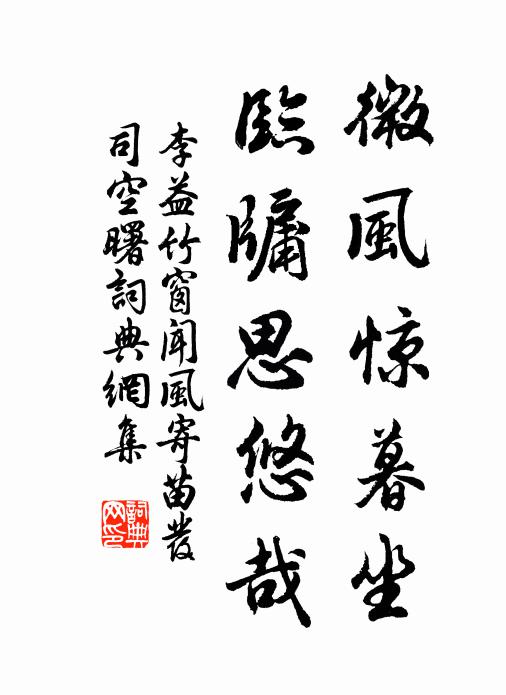 微風惊暮坐
臨牖思悠哉
李益竹窗聞風寄苗發
司空曙詞典網集
詞典网印